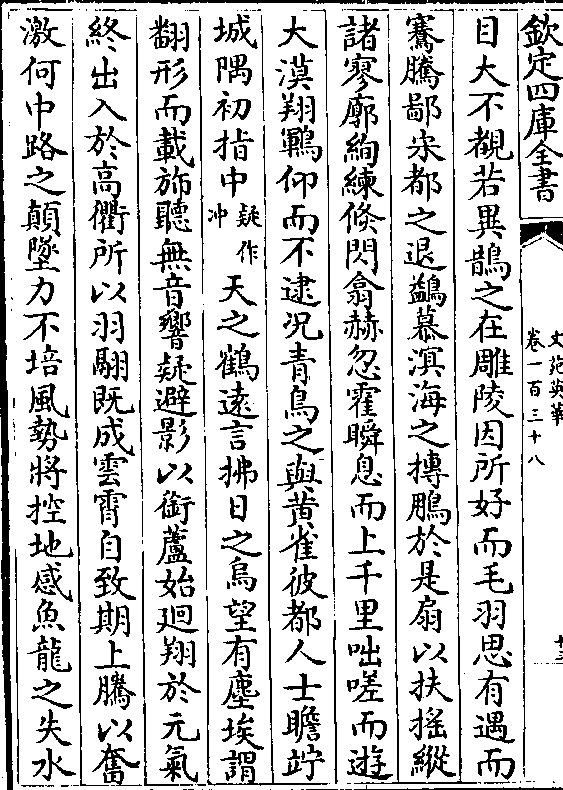 欽定四庫全書
文苑英華
卷一百三十八
十三
目大不覩若異鵲之在雕陵因所好而毛羽思有遇而
騫騰鄙宋都之退鷁慕溟海之摶鵬於是扇以扶揺縱
諸寥廓絢練倐閃翕赫忽霍瞬息而上千里咄嗟而遊
大漠翔鷤仰而不逮况青鳥之與黄雀彼都人士瞻竚
城隅初指中疑作冲天之鶴遠言拂日之烏望有塵埃謂
翻形而載斾聽無音響疑避影以銜蘆始迴翔於元氣
終出入於高衢所以羽翮既成雲霄自致期上騰以奮
激何中路之顛墜力不培風勢將控地感魚龍之失水